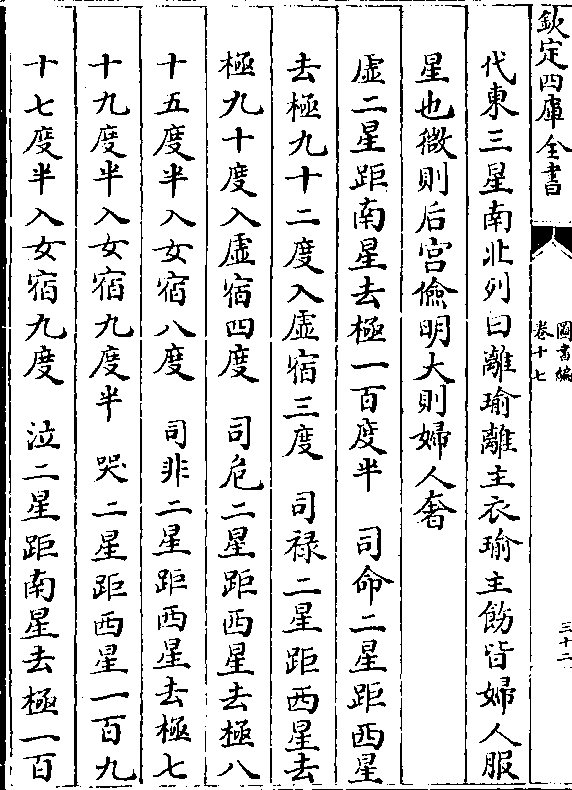 欽定四庫全書
圖書編
卷十七
三十二
代東三星南北列曰離瑜離主衣瑜主飭皆婦人服
星也微則后宫儉明大則婦人奢
虚二星距南星去極一百度半　司命二星距西星
去極九十二度入虚宿三度　司禄二星距西星去
極九十度入虚宿四度　司危二星距西星去極八
十五度半入女宿八度　司非二星距西星去極七
十九度半入女宿九度半　哭二星距西星一百九
十七度半入女宿九度　泣二星距南星去極一百